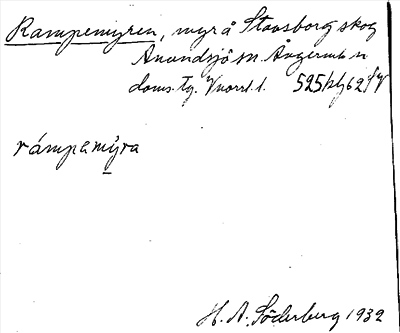 Rampemyren, myr å Stavsborg skog
Anundsjö sn. Ångerman
doms. tg. V norrl. l. 525 kl 62
rámpemỳra
H. A. Söderberg 1932